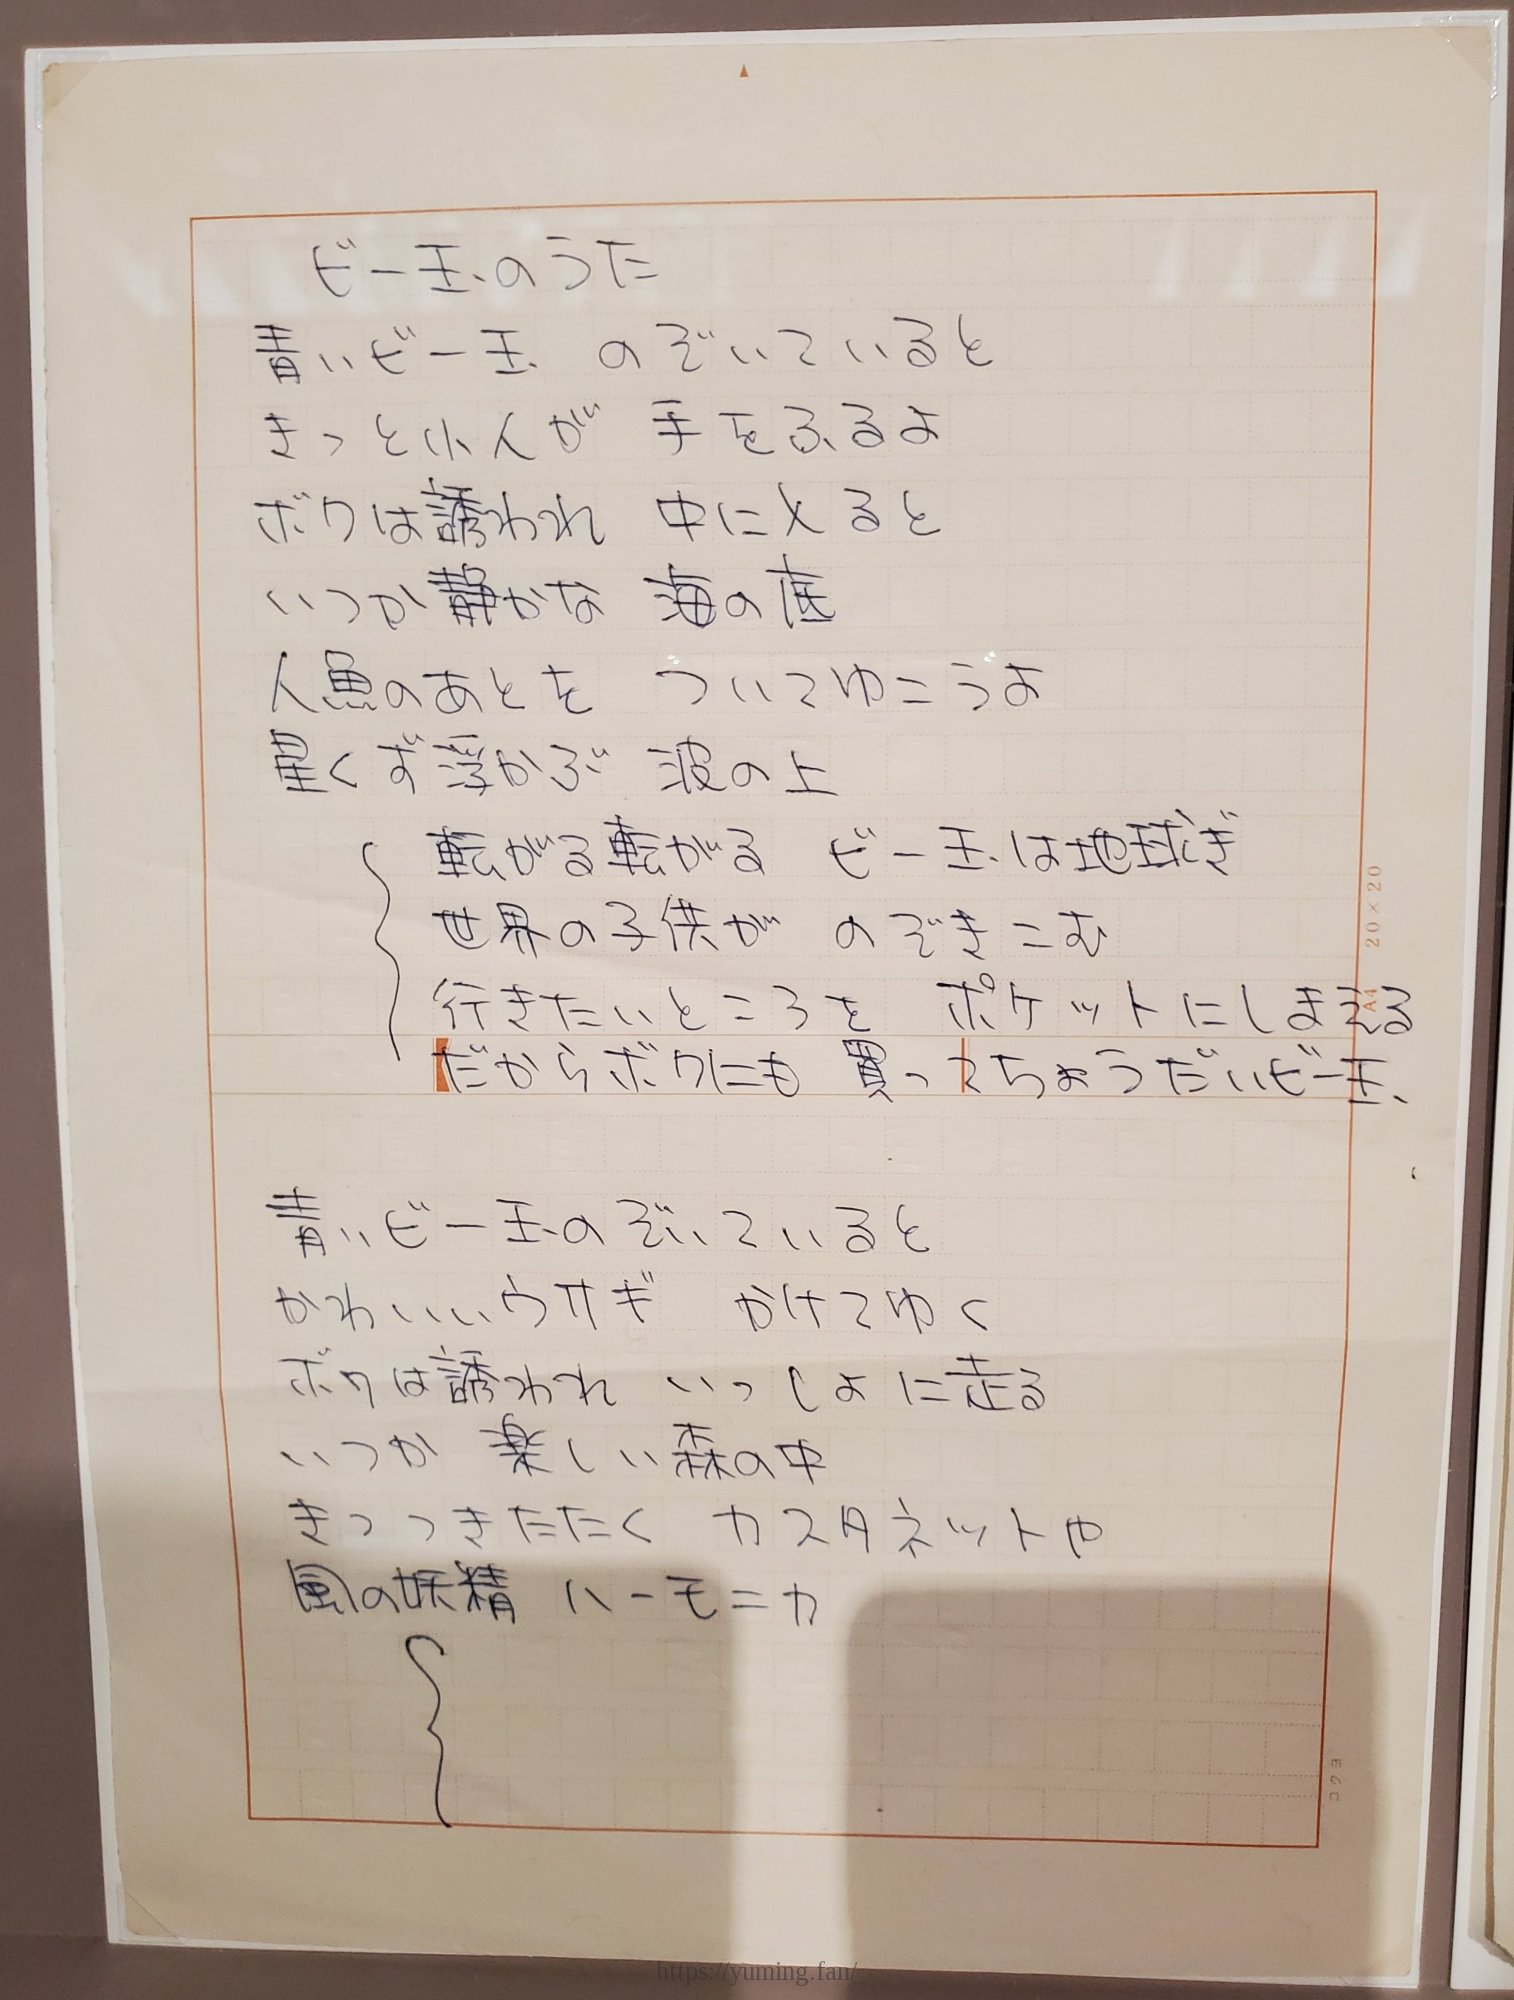 ビー玉のうた
青いビー玉 のぞいていると
きっと小人が 手をふるよ
ボクは誘われ 中に入ると
いつか静かな 海の底
人魚のあとを ついてゆこうよ
星くず浮かぶ 波の上
転がる転がる ビー玉は地球ぎ
世界の子供が のぞきこむ
行きたいところを ポケットにしまえる
だからボクにも 買ってちょうだいビー玉
青いビー玉のぞいていると
かわいいウサギ かけてゆく
ボクは誘われ いっしょに走る
いつか 楽しい森の中
きつつきたたく カスタネットや
風の妖精 ハーモニカ
A4 20×20
コクヨ
https://yuming.fan/